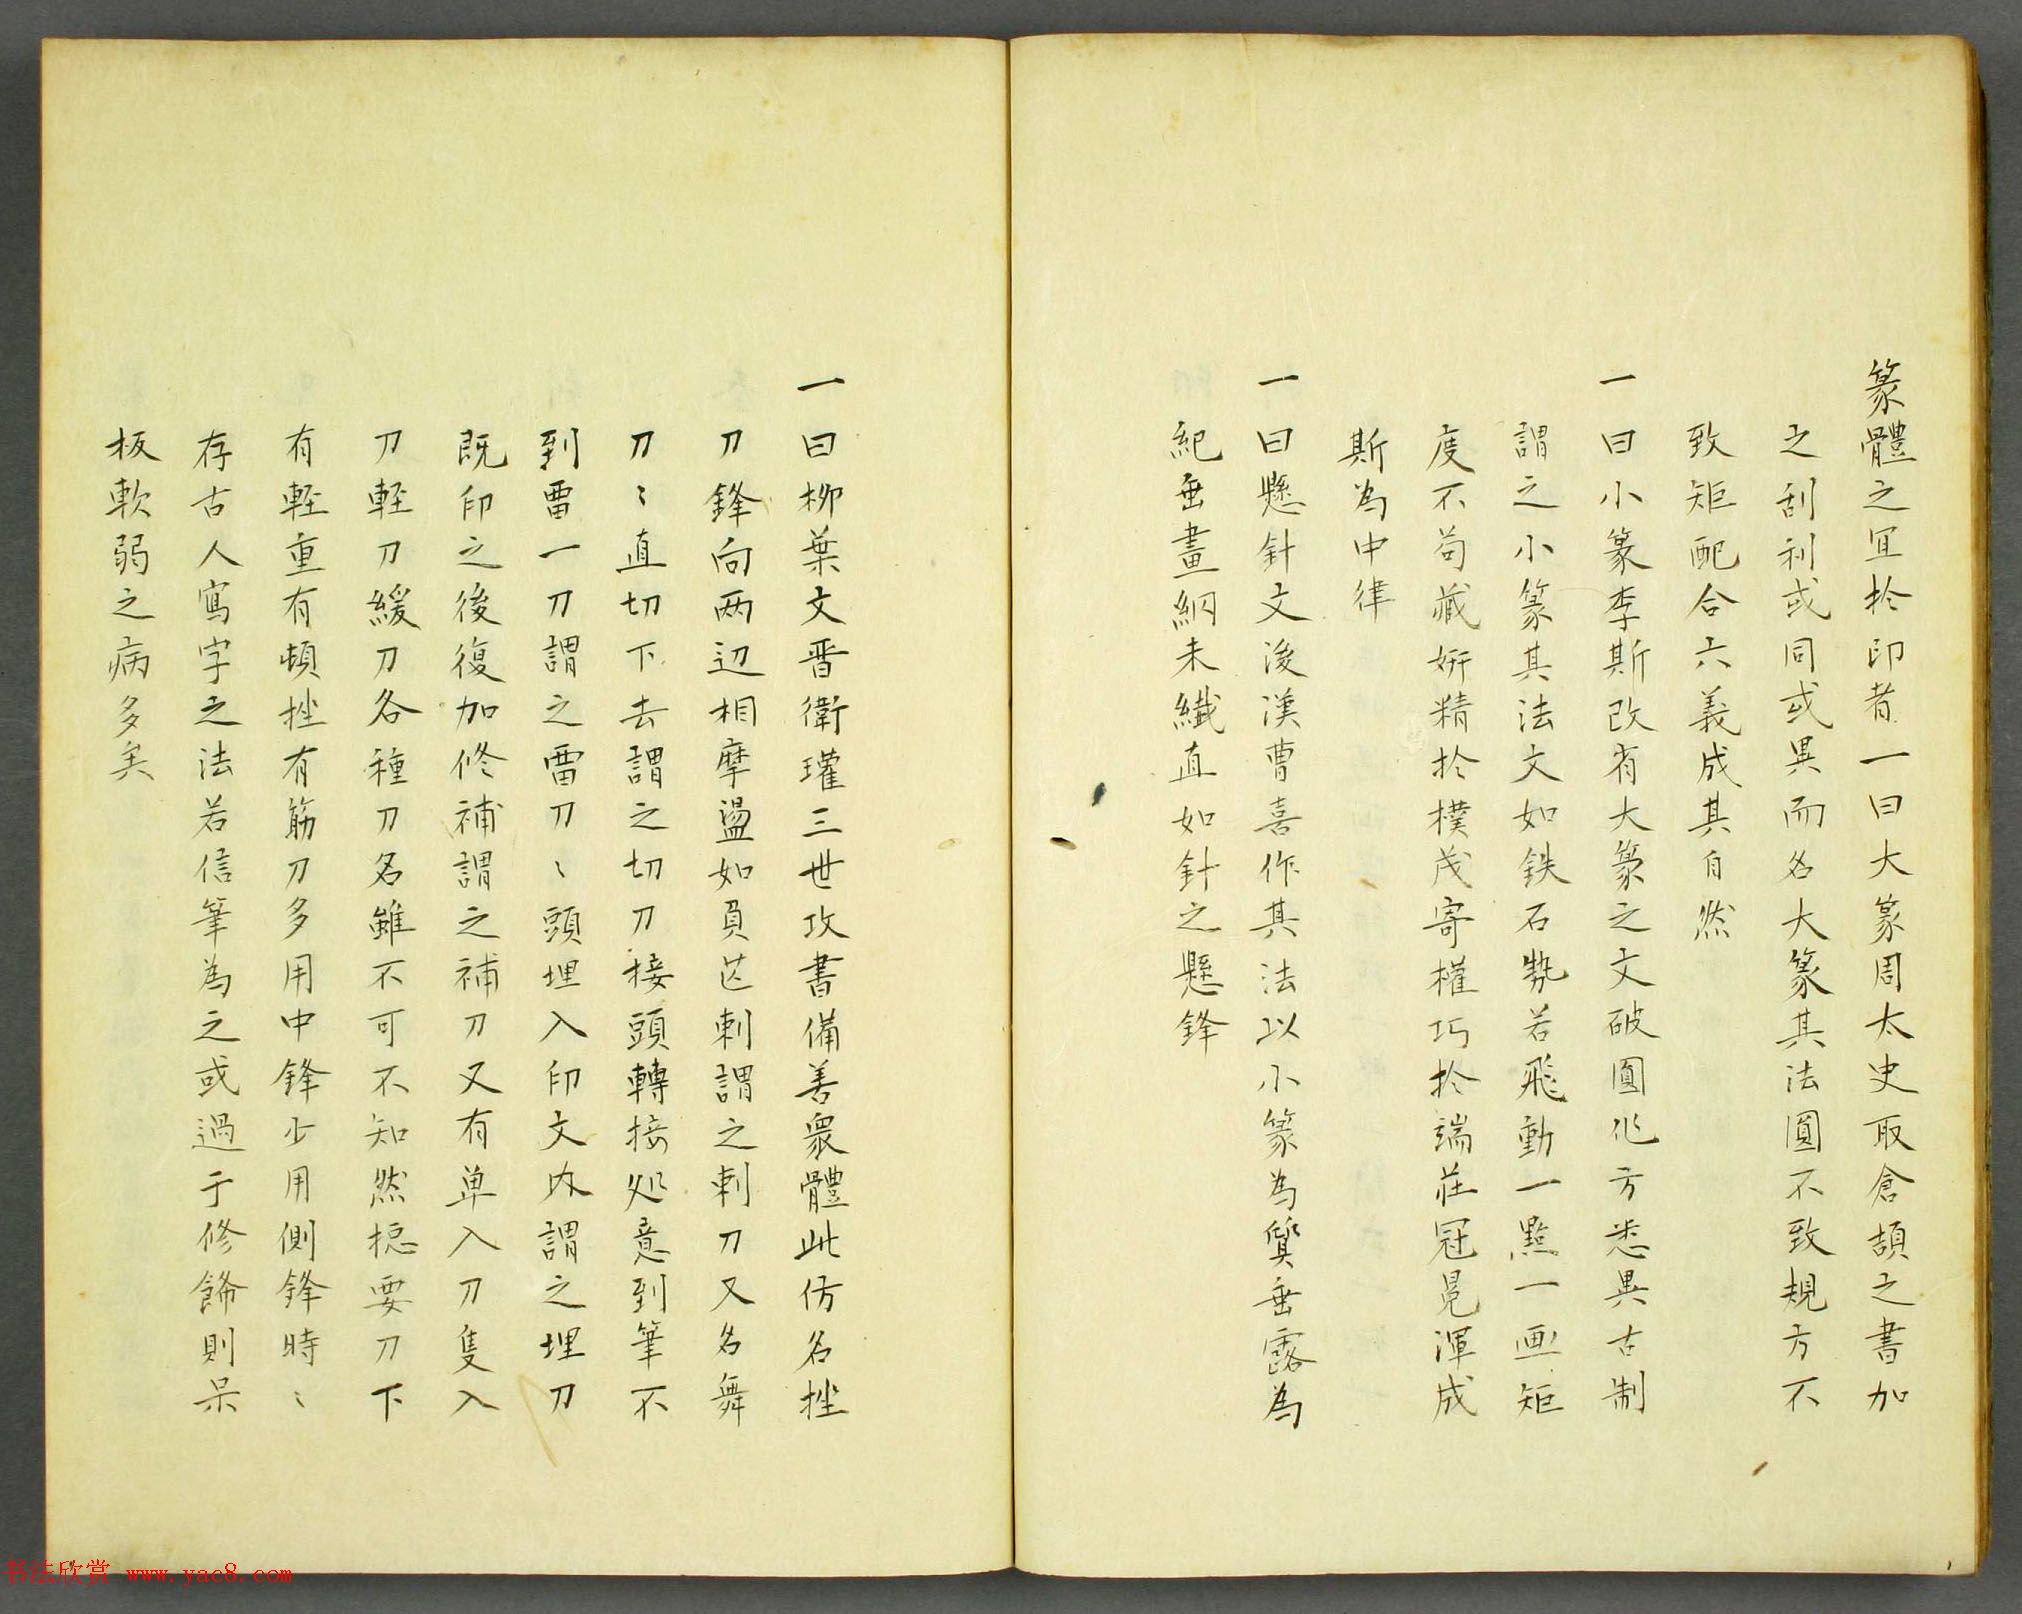 篆體之宜於印者一曰大篆周太史取倉頡之書加
之刮利或同或異而名大篆其法圓不致規方不
致矩配合六義成其自然
一曰小篆李斯改省大篆之文破圓作方悉異古制
謂之小篆其法文如鉄石勢若飛動一點一画矩
度不苟藏妍精於樸茂寄權巧於端莊冠冕渾成
斯為中律
一曰懸針文後漢曹喜作其法以小篆為質垂露為
紀垂畫網未纖直如針之懸鋒
一曰柳葉文晋衛瓘三世攻書備善衆體此仿名挫
刀鋒向两辺相摩盪如負芒刺謂之刺刀又名舞
刀〻直切下去謂之切刀接頭轉接処意到筆不
到雷一刀謂之雷刀〻頭埋入印文内謂之埋刀
既印之後復加修補謂之補刀又有单入刀隻入
刀軽刀緩刀各種刀名雖不可不知然揔要刀下
有軽重有頓挫有筋刀多用中鋒少用側鋒時〻
存古人寫字之法若信筆為之或過于修餙則呆
板軟弱之病多矣
书法欣赏 www.yac8.com